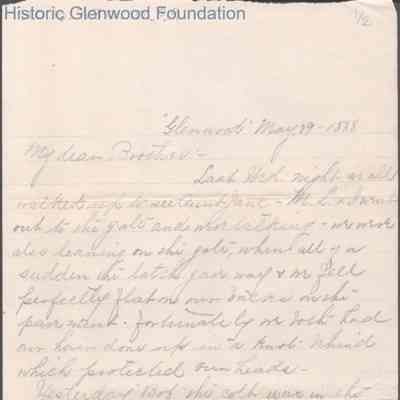 Historic Glenwood Foundation
1/2
"Glenwood" May 29 - 1888
My dear Brother:-
Last night we all
walked up to see Aunt Jane - M. L. & I went
out to the gate and were talking - we were
also leaning on the gate, when all of a
sudden the latch gave way & we fell
perfectly flat on our backs on the
pavement. Fortunately we both had
our hair done up in a knot behind
which protected our heads.
Yesterday Bob the colt was in the